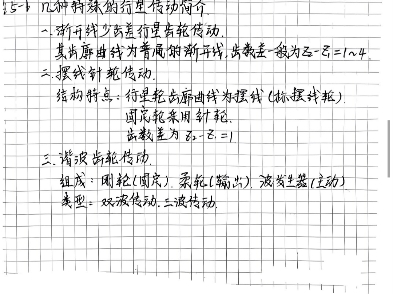 §5-6 几种特殊的行星传动简介
一.渐开线少齿差行星齿轮传动.
其齿廓曲线为普通的渐开线,齿数差一般为Z₂-Z₁=1~4
二.摆线针轮传动.
结构特点:行星轮齿廓曲线为摆线(称摆线轮).
固定轮采用针轮.
齿数差为Z₂-Z₁=1
三.谐波齿轮传动.
组成:刚轮(固定).柔轮(输出).波发生器(主动)
类型:双波传动.三波传动.